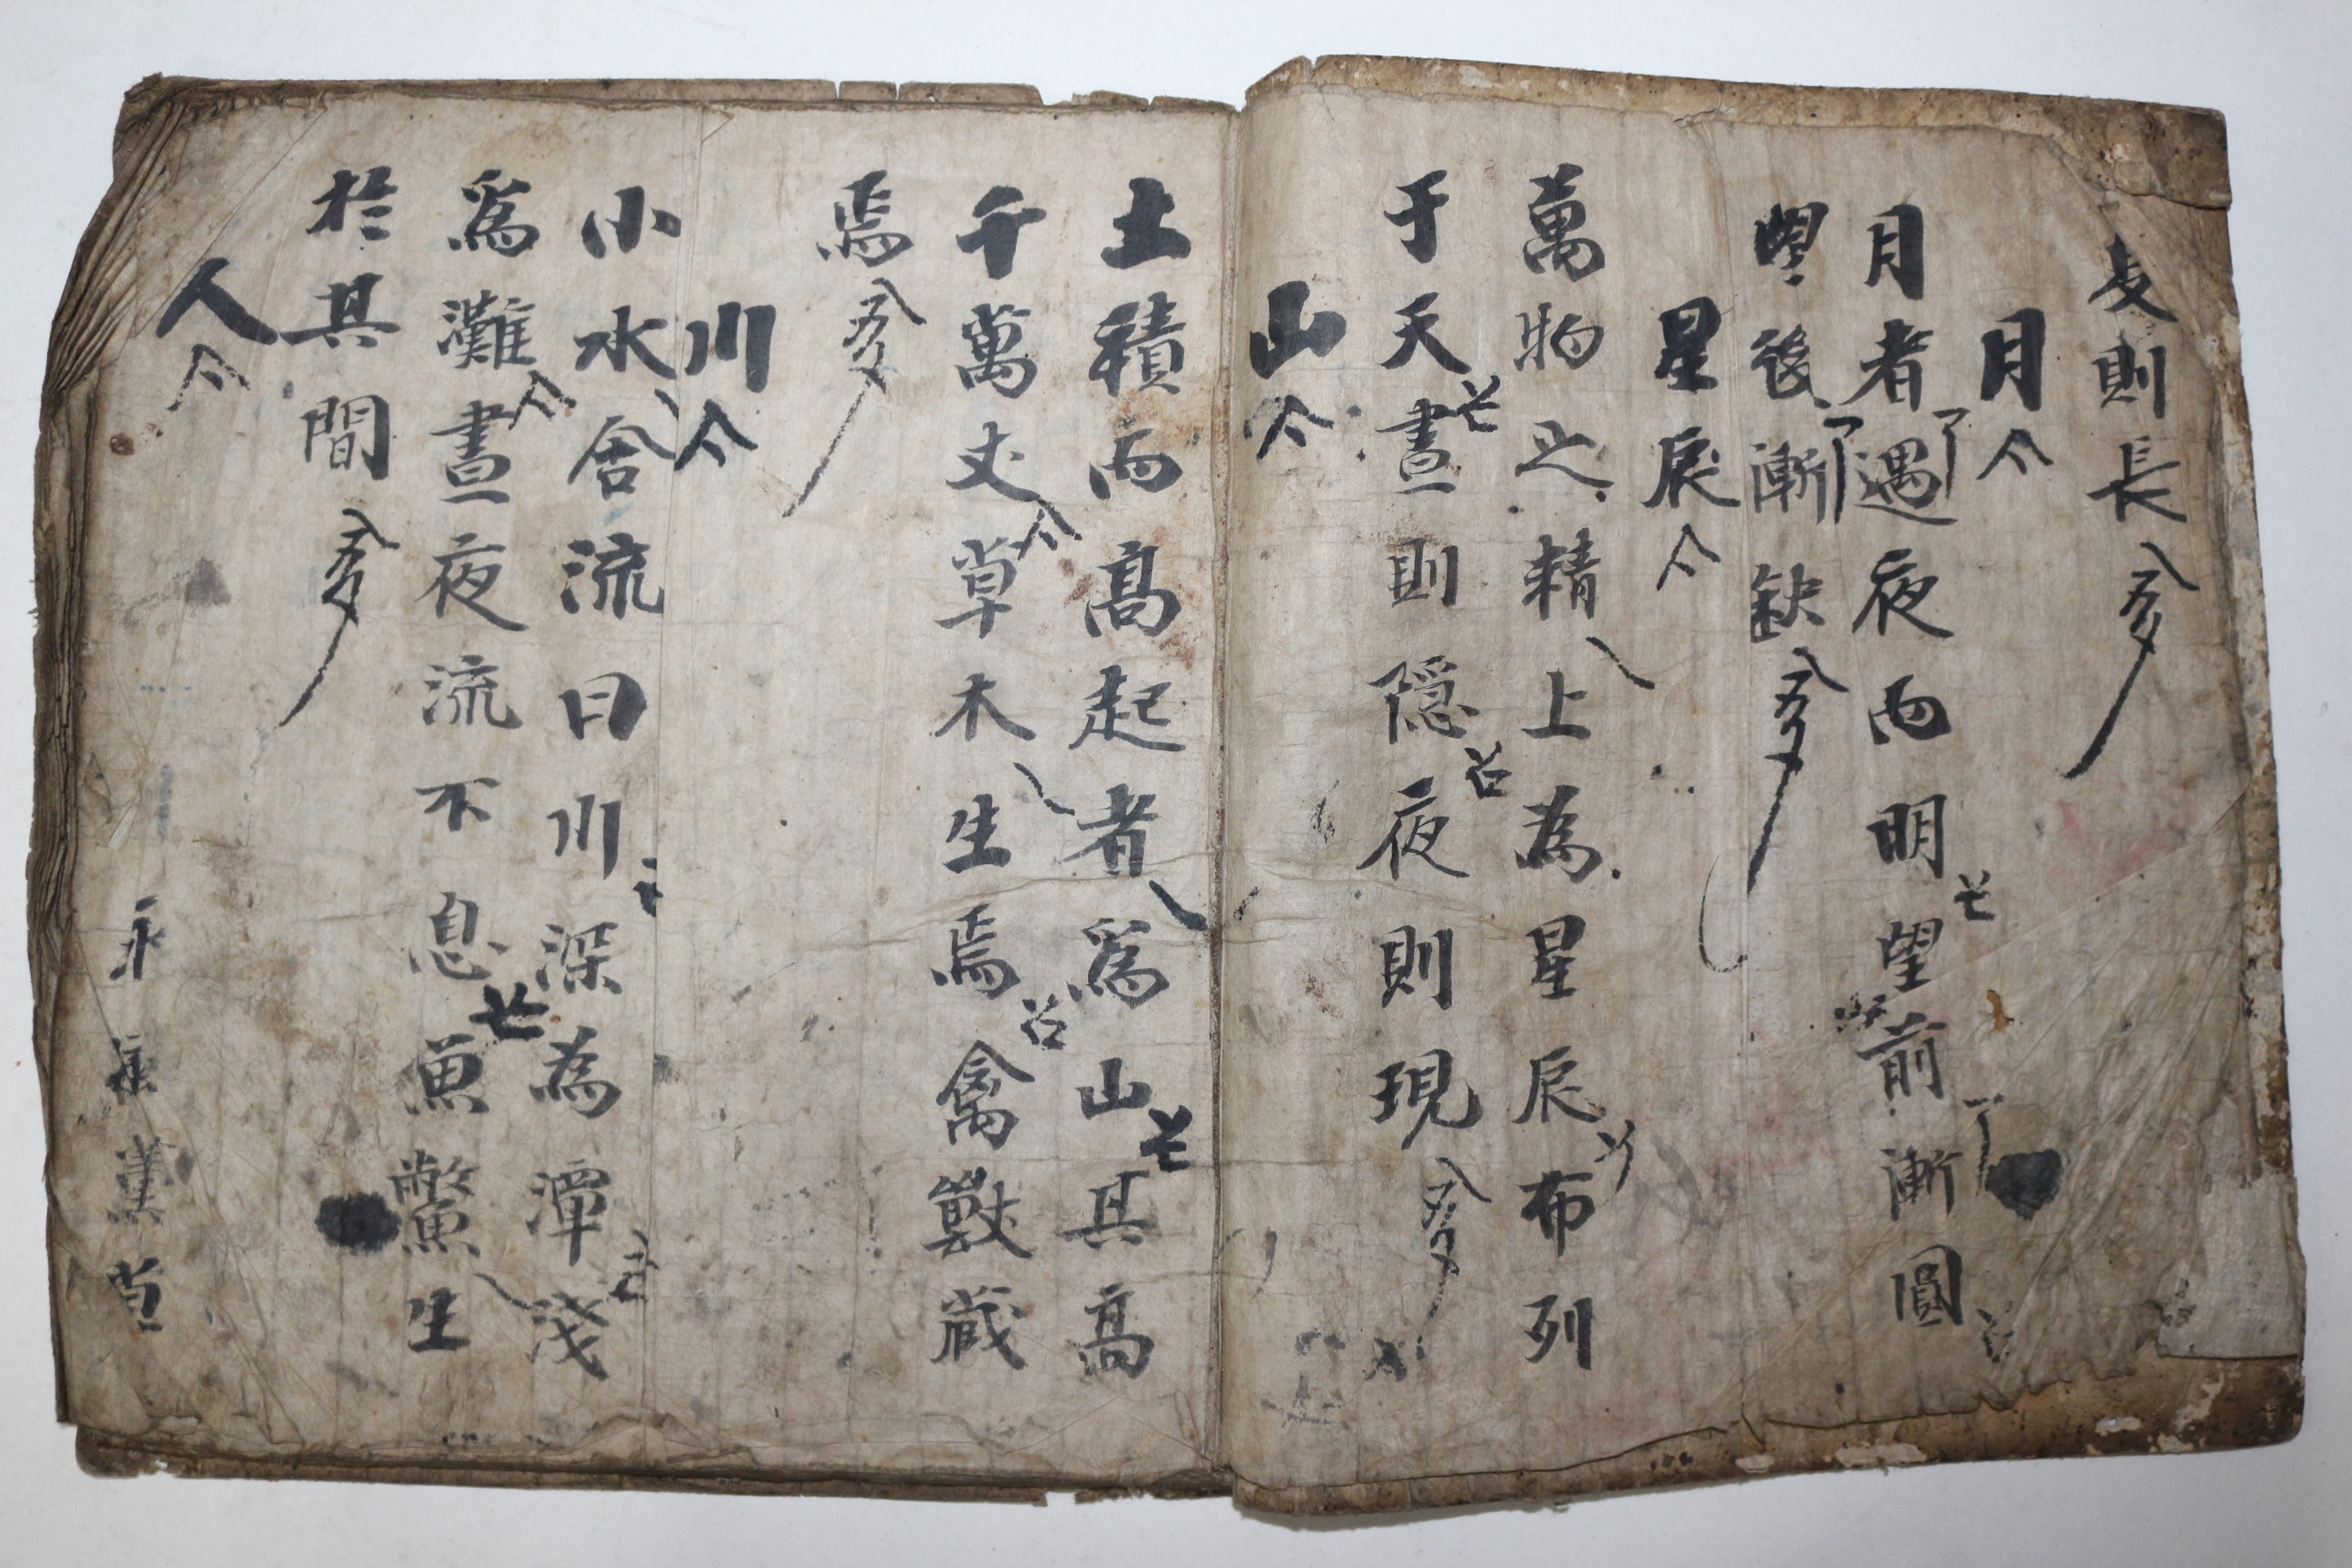 夏則長
月
月者遇夜而明望前漸圓
望後漸缺
星辰
萬物之精上為星辰布列
于天晝則隱夜則現
山
土積而高起者爲山其高
千萬丈草木生焉禽獸藏
焉
川
小水舍流曰川深為潭淺
爲灘晝夜流不息魚鱉生
於其間
人